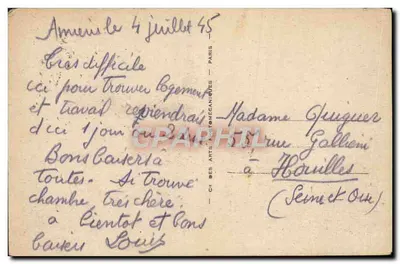 Amiens le 4 juillet 45
Très difficile
ici pour trouver logement
et travail reviendrais
d'ici 1 jour ou 2
Bons baisers a
toutes. Si trouve
chambre, très chère.
à bientot et bons
baisers Louis
CIE DES ARTS PHOTOMECANIQUES - PARIS
Madame
55 rue Gallieni
à Houilles
(Seine et Oise)
CPARAMA